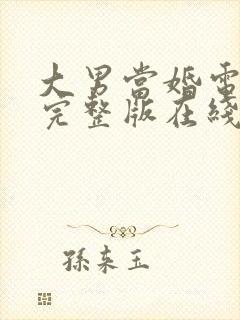 大男当婚電
完整版在綫
孫来玉